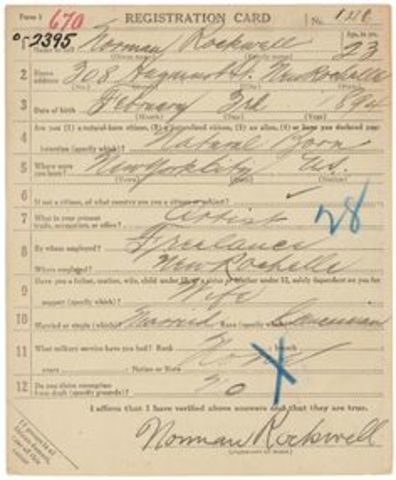 Form 1 670 REGISTRATION CARD No.
2395 Norman Rockwell 23
(Given name) (Family name) Age, in yrs.
2 Home address 308 New Rochelle
(No.) (Street) (City) (State)
3 Date of birth February 3rd 1894
(Month) (Day) (Year)
4 Are you (1) a natural-born citizen, (2) a naturalized citizen, (3) an alien, (4) or have you declared your
intention (specify which)? Natural Born
5 Where were you born? New York City U.S.
(Town) (State) (Nation)
6 If not a citizen, of what country are you a citizen or subject?
7 What is your present trade, occupation, or office? Artist 28
8 By whom employed? Freelance
Where employed? New Rochelle
9 Have you a father, mother, wife, child under 12, or a sister or brother under 12, solely dependent on you for
support (specify which)? Wife
10 Married or single (which)? Married Race (specify which)? Caucasian
11 What military service have you had? Rank None branch
years Nation or State
12 Do you claim exemption from draft (specify grounds)? No X
I affirm that I have verified above answers and that they are true.
Norman Rockwell